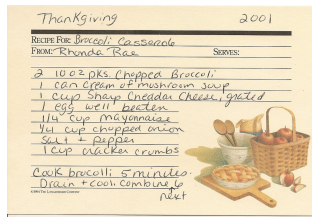 Thanksgiving 2001
RECIPE FOR: Broccoli Casserole
FROM: Rhonda Rae SERVES:
2 10 oz pks. Chopped Broccoli
1 can cream of mushroom soup
1 cup Sharp Cheddar Cheese, grated
1 egg well beaten
1/4 cup mayonnaise
1/4 cup chopped onion
Salt + pepper
1 cup cracker crumbs
Cook brocolli 5 minutes.
Drain + cool combine 6
next